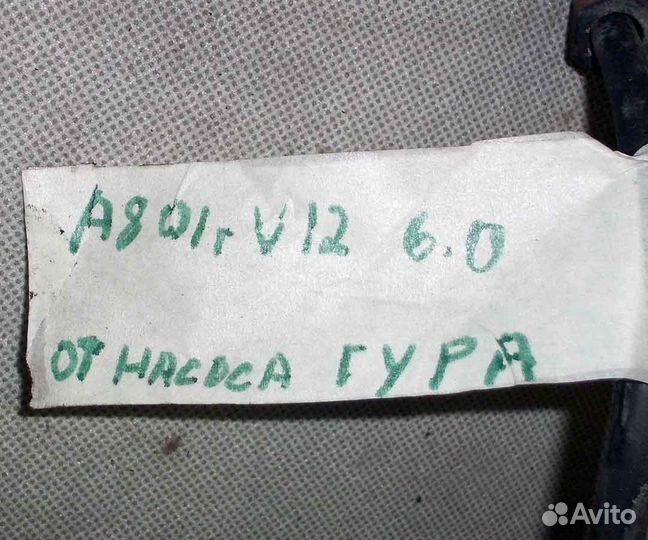 A8 01г V12 6.0
от насоса ГУРА
Avito